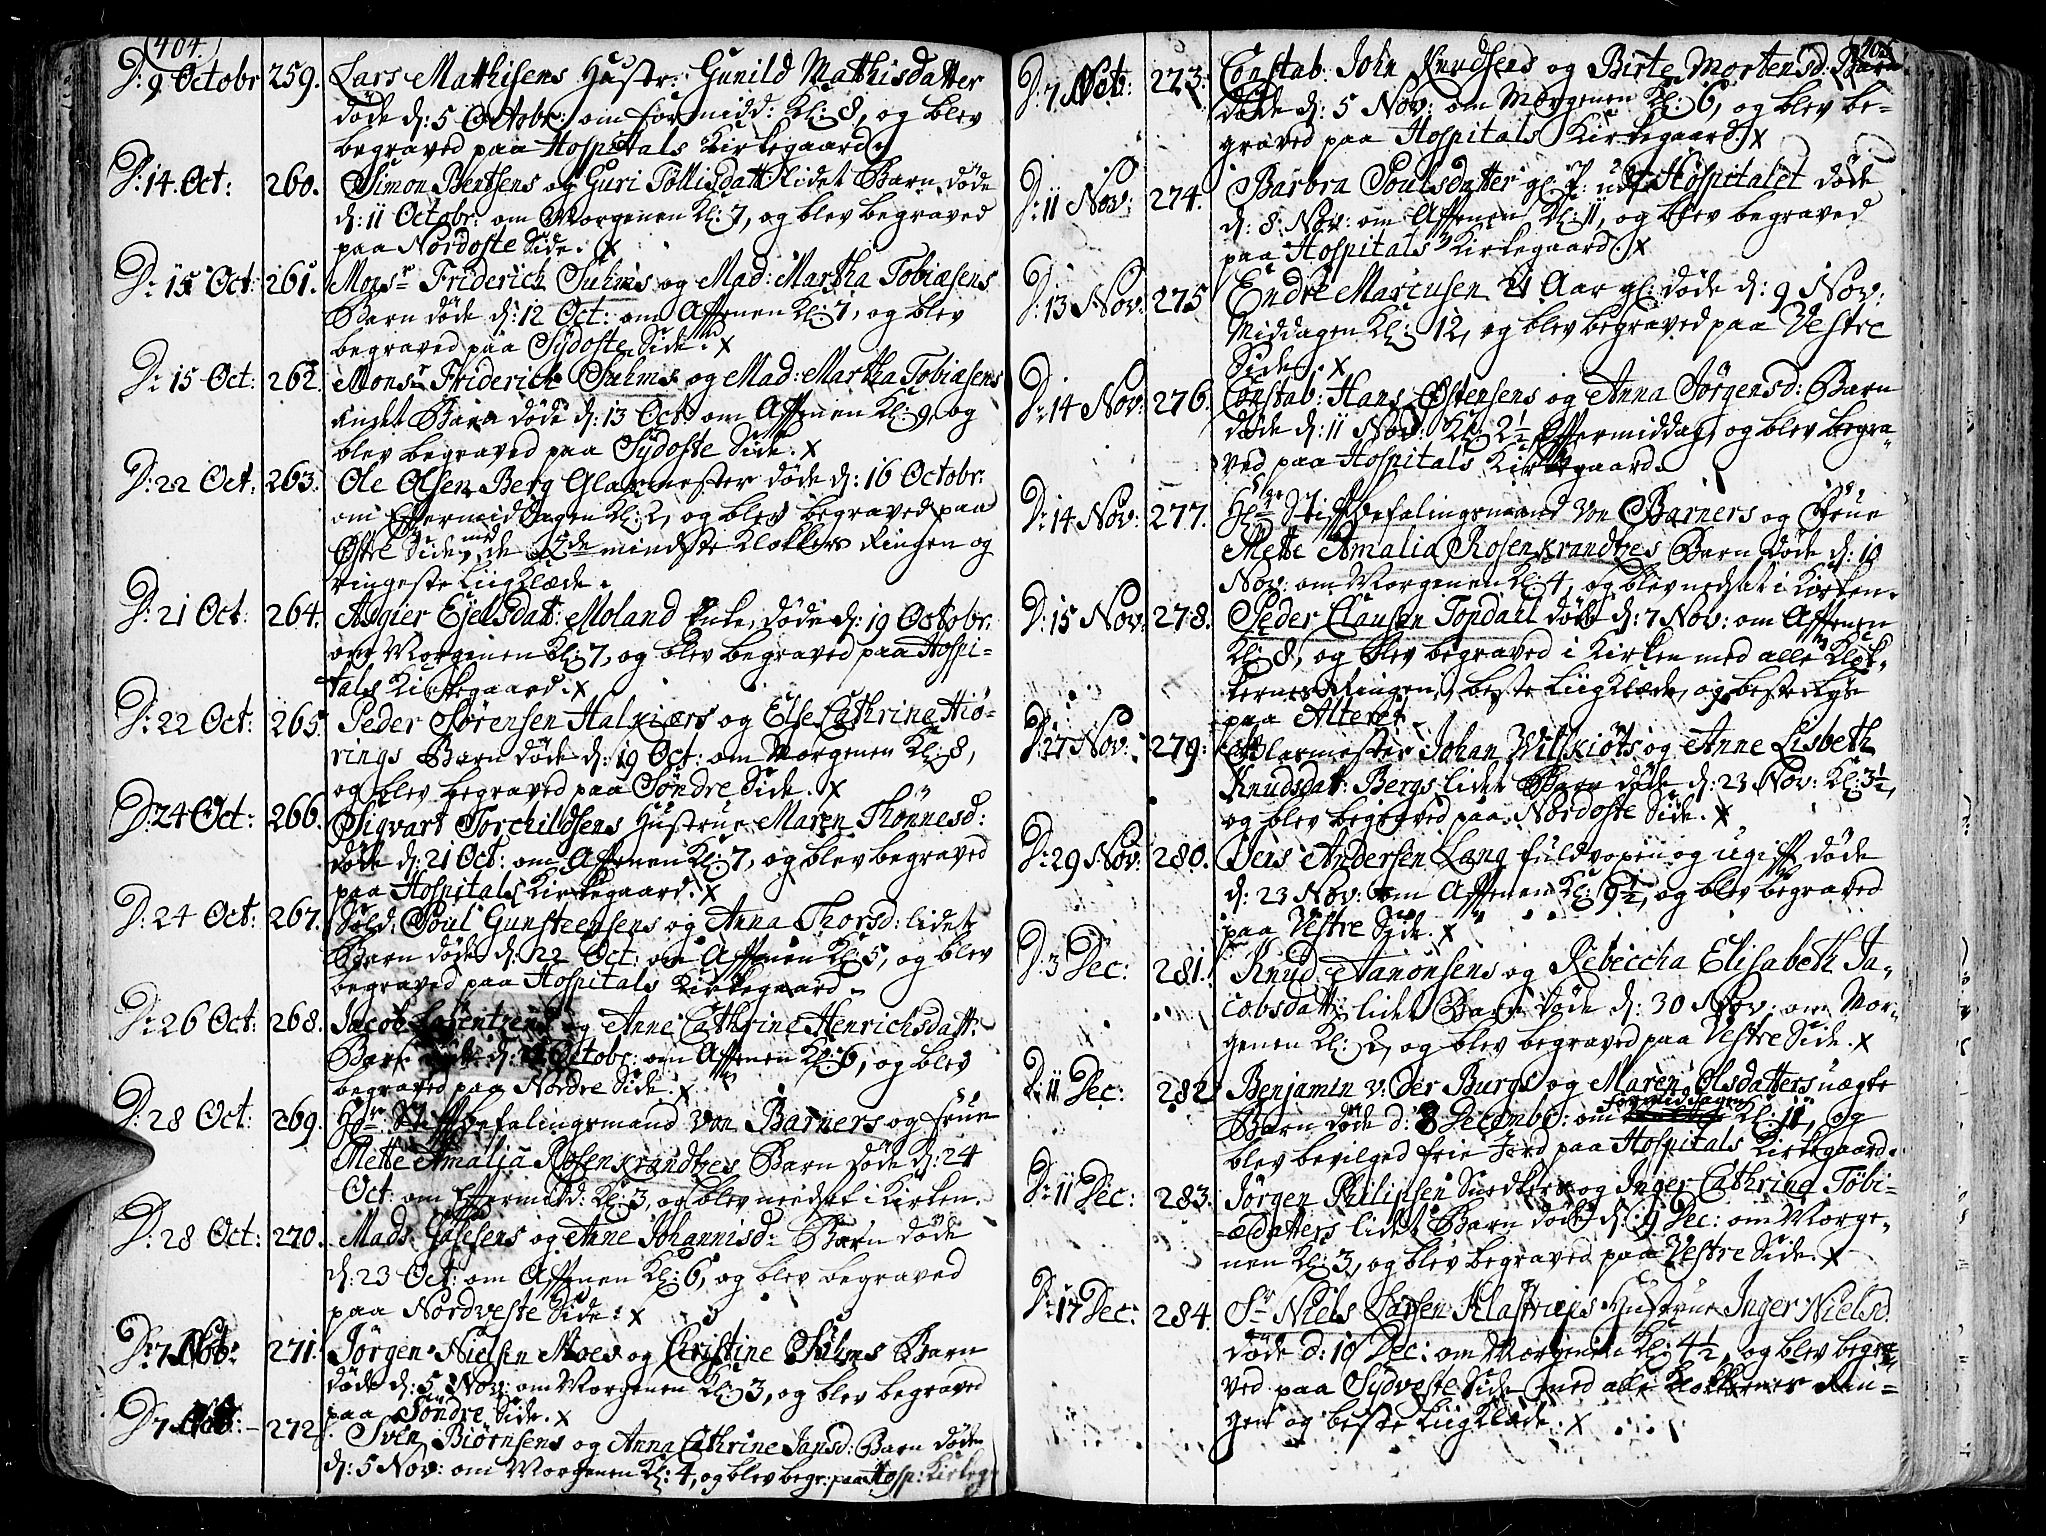 404.
D: 9 Octobr 259. Lars Mathisens Hustr: Gunild Mathisdatter
døde d: 5 Octobr: om formidd: Kl: 8, og blev
begraved paa Hospitals Kirkegaard
D: 14 Oct: 260. Simon Bentsens og Guri Tollisdatt lidet Barn døde
d: 11 Octobr: om Morgenen Kl: 7, og blev begraved
paa Nordoste Side. X
D: 15 Oct: 261. Monsr Friderich Suhms og Mad: Martha Tobiasens
Barn døde d: 12 Oct: om Afftenen Kl: 7, og blev
begraved paa Sydoste Side. X
D: 15 Oct: 262. Monsr Friderich Suhms og Mad: Martha Tobiasens
andet Barn døde d: 13 Oct: om Afftenen Kl: 9, og
blev begraved paa Sydoste Side. X
D: 22 Oct: 263. Ole Olsen Berg Glarmester døde d: 16 Octobr:
om Eftermiddagen Kl: 2, og blev begraved paa
Østre Side, med de mindste Klokkers Ringen og
ringeste Liigklæde.
D: 21 Oct: 264. Aagier Ejelsdat: Moland Enke, døde d: 19 Octobr:
om Morgenen Kl: 7, og blev begraved paa Hospi-
tals Kirkegaard. X
D: 22 Oct: 265. Peder Sørensen Halkiærs og Else Cathrine Hiø-
rings Barn døde d: 19 Oct: om Morgenen Kl: 8,
og blev begraved paa Søndre Side. X
D: 24 Oct: 266. Sigvart Torchildsens Hustrue Maren Thønnesd:
døde d: 21 Oct: om Afftenen Kl: 7, og blev begraved
paa Hospitals Kirkegaard. X
D: 24 Oct: 267. Sold: Poul Gunsteensens og Anna Thorsd: lidet
Barn døde d: 22 Oct: om Afftenen Kl: 5, og blev
begraved paa Hospitals Kirkegaard.
D: 26 Oct: 268. Jacob Lorentzens og Anne Cathrine Henrichsdatt:
Barn døde d: Octobr: om Afftenen Kl: 6, og blev
begraved paa Nordre Side. X
D: 28 Oct: 269. Hr Stifftbefalingsmand von Barners og Frue
Mette Amalia Rosenkrandtzes Barn døde d: 24
Oct: om Eftermidd: Kl: 3, og blev nedsat i Kirken.
D: 28 Oct: 270. Mads og Anne Johannisd: Barn døde
d: 23 Oct: om Afftenen Kl: 6, og blev begraved
paa Nordveste Side. X
D: 7 Nov: 271. Jørgen Nielsen Moes og Christine Suhms Barn
døde d: 5 Nov: om Morgenen Kl: 3, og blev begraved
paa Søndre Side. X
D: 7 Nov: 272. Sven Biørnsens og Anna Cathrine Jansd: Barn døde
d: 5 Nov: om Morgenen Kl: 4, og blev begr: paa Hosp: Kirkeg:
405.
D: 7 Nov: 273. Constab: John Knudsens og Birte Mortensd: Barn
døde d: 5 Nov: om Morgenen Kl: 6, og blev be-
graved paa Hospitals Kirkegaard. X
D: 11 Nov: 274. Barbra Poulsdatter gl: P: udj Hospitalet døde
d: 8 Nov: om Afftenen Kl: 11, og blev begraved
paa Hospitals Kirkegaard. X
D: 13 Nov: 275 Endre Marcusen 21 Aar gl: døde d: 9 Nov:
Middagen Kl: 12, og blev begraved paa Vestre
Side. X
D: 14 Nov: 276. Constab: Hans Østensens og Anna Jørgensd: Barn
døde d: 11 Nov: Kl: 2½ Eftermiddag, og blev begra-
ved paa Hospitals Kirkegaard.
D: 14 Nov: 277. Hr Stifftbefalingsmand von Barners og Frue
Mette Amalia Rosenkrandtzes Barn døde d: 10
Nov: om Morgenen Kl: 4, og blev nedsat i Kirken.
D: 15 Nov: 278. Peder Clausen Topdahl døde d: 7 Nov: om Afftenen
Kl: 8, og blev begraved i Kirken med alle Klok-
kernes Ringen, beste Liigklæde, og beste Lyse
paa Alteret.
D: 27 Nov: 279. Glarmester Johan Willkiørs og Anne Lisbeth
Knudsdat: Bergs lidet Barn døde d: 23 Nov: Kl: 3½,
og blev begraved paa Nordoste Side. X
D: 29 Nov: 280. Jens Andersen Lang fuldvoxen og ugifft døde
d: 23 Nov: om Afftenen Kl: 9½, og blev begraved
paa Vestre Side. X
D: 3 Dec: 281. Knud Aanonsens og Rebeccha Elisabeth Ja-
cobsdatt: lidet Barn døde d: 30 Nov: om Mor-
genen Kl: 2, og blev begraved paa Vestre Side. X
D: 11 Dec: 282 Benjamin v: der Burgs og Maren Olsdatters uægte
Barn døde d: 8 Decembr: om formiddagen Kl: 11, og
blev bevilged frie Jord paa Hospitals Kirkegaard.
D: 11 Dec: 283. Jørgen Philipsen Snedkers og Inger Cathrine Tobi-
ædatters lidet Barn døde d: 9 Dec: om Morge-
nen Kl: 3, og blev begraved paa Vestre Side. X
D: 17 Dec: 284. Sr Niels Lassen Hustrue Inger Nielsd:
døde d: 10 Dec: om Morgenen Kl: 4½, og blev begra-
ved paa Sydveste Side med alle Klokkernes Rin-
gen og beste Liigklæde. X